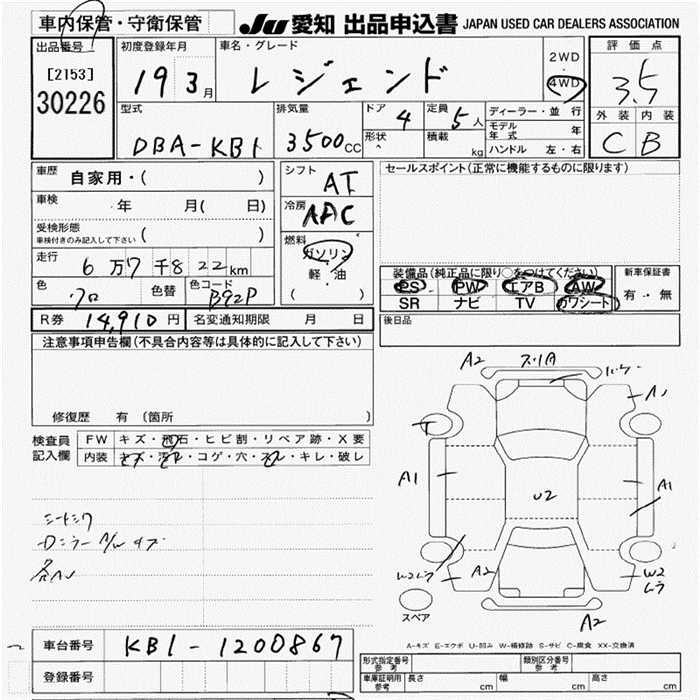 車内保管・守衛保管
JU 愛知 出品申込書 JAPAN USED CAR DEALERS ASSOCIATION
出品番号
[2153]
30226
初度登録年月
19 3月
車名・グレード
レジェンド
2WD
・
4WD
評価点
3.5
外装 内装
C B
型式
DBA-KB1
排気量
3500CC
ドア 4
形状
定員 5人
積載 kg
ディーラー・並行
モデル年式 年
ハンドル 左・右
車歴
自家用・( )
車検
年 月( 日)
受検形態
車検付きのみ記入して下さい ( )
走行
6万7千822km
色
クロ
色替
色コード
B92P
R券 14,910円 名変通知期限 月 日
シフト
AT
冷房
AAC
燃料
ガソリン
軽・油
( )
セールスポイント(正常に機能するものに限ります)
装備品(純正品に限り○をつけてください)
PS PW エアB AW
SR ナビ TV カワシート
新車保証書
有・無
後日品
注意事項申告欄(不具合内容等は具体的に記入して下さい)
修復歴 有 (箇所 )
検査員
記入欄
FW キズ・飛石・ヒビ割・リペア跡・X要
内装 キズ・汚れ・コゲ・穴・スレ・キレ・破レ
A2
A1
A1
U2
A1
A2
W2
スペア
A2
A-キズ E-エクボ U-凹み W-補修跡 S-サビ C-腐食 XX-交換済
車台番号 KB1-1200867
登録番号
形式指定番号
参考
類別区分番号
参考
車庫証明用
参考
長さ cm 幅 cm 高さ cm